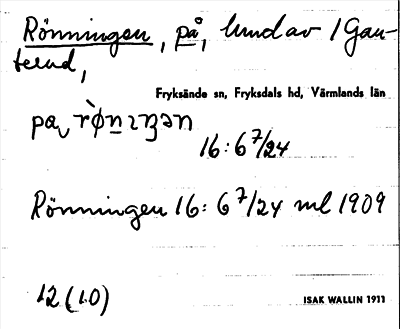 Rönningen, på, hmd av 1 Gau-
terud,
Fryksände sn, Fryksdals hd, Värmlands län
16:6 7/24
Rönningen 16: 6 7/24 ml 1909
12 (10)
ISAK WALLIN 1911